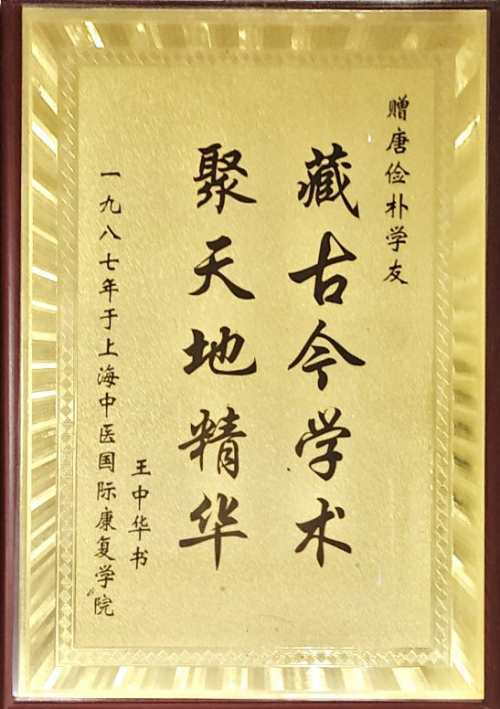 赠唐俭朴学友
藏古今学术
聚天地精华
王中华书
一九八七年于上海中医国际康复学院